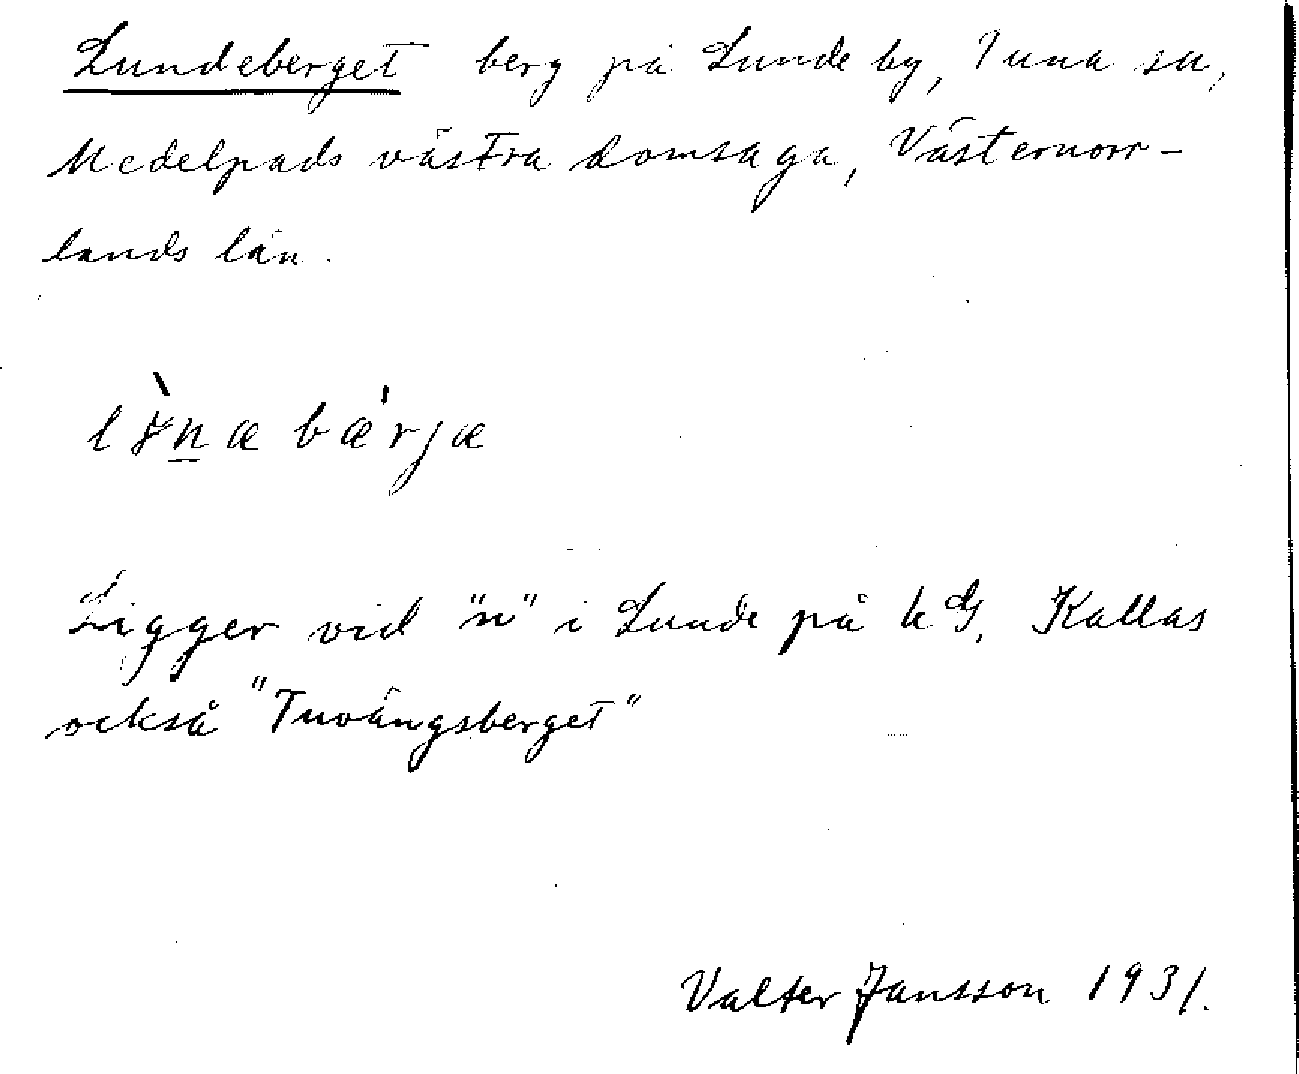 Lundeberget berg på Lunde by, Tuna sn,
Medelpads västra domsaga, Västernorr-
lands län.
bærjæ
Ligger vid "n" i Lunde på kG. Kallas
också "Tuvängsberget"
Valter Jansson 1931.